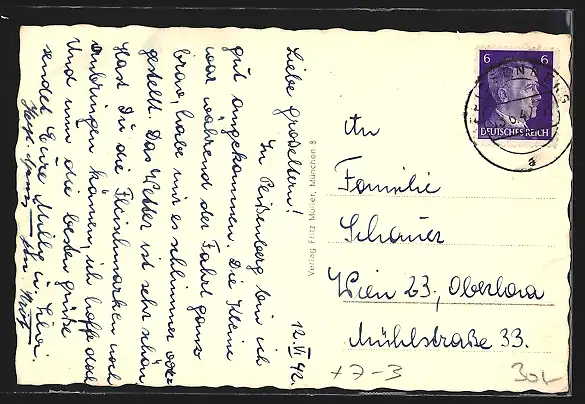 12.VI.42.
Liebe Großeltern!
In Peißenberg bin ich
gut angekommen. Die Kleine
war während der Fahrt ganz
brav, habe mir es schlimmer vor-
gestellt. Das Wetter ist sehr schön
Hast Du die Fleischmarken noch
anbringen können, ich hoffe doch
Und nun die besten Grüße
sendet Euch Milly u.
Verlag Fritz Müller, München 8
6 6
DEUTSCHES REICH
a
An
Familie
Schauer
Wien 23, Oberlaa
Mühlstraße 33.
+7-3
30L